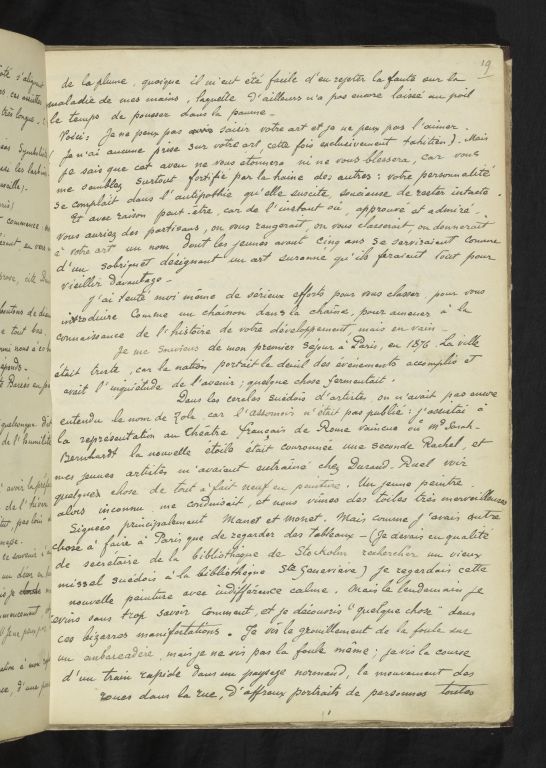 19
de la plume, quoique il m'eut été facile d'en rejeter la faute sur la
maladie de mes mains, laquelle d'ailleurs n'a pas encore laissé au poil
le temps de pousser dans la paume.
Voici: Je ne peux pas saisir votre art et je ne peux pas l'aimer.
Je n'ai aucune prise sur votre art, cette fois exclusivement tahitien). Mais
je sais que cet aveu ne vous étonnera ni ne vous blessera, car vous
me semblez surtout fortifié par la haine des autres: votre personnalité
se complait dans l'antipathie qu'elle suscite, soucieuse de rester intacte.
Et avec raison peut-être, car de l'instant où, approuvé et admiré,
vous auriez des partisans, on vous rangerait, on vous classerait, on donnerait
à votre art un nom dont les jeunes avant cinq ans se serviraient comme
d'un sobriquet désignant un art suranné qu'ils feraient tout pour
vieillir davantage.
J'ai tenté moi même de sérieux efforts pour vous classer, pour vous
introduire comme un chainon dans la chaîne, pour amener à la
connaissance de l'histoire de votre développement, mais en vain.
Je me souviens de mon premier séjour à Paris, en 1876. La ville
était triste, car la nation portait le deuil des événements accomplis et
avait l'inquiétude de l'avenir; quelque chose fermentait.
Dans les cercles suédois d'artistes, on n'avait pas encore
entendu le nom de Zola car l'assomoir n'était pas publié: j'assistai à
la représentation au Théâtre Français de Rome vaincue où Mme Sarah-
Bernhardt la nouvelle étoile était couronnée une seconde Rachel, et
mes jeunes artistes m'avaient entrainé chez Durand-Ruel voir
quelque chose de tout à fait neuf en peinture. Un jeune peintre
alors inconnu me conduisait, et nous vimes des toiles très merveilleuses
Signées principalement Manet et monet. Mais comme j'avais autre
chose à faire à Paris que de regarder des tableaux - (Je devais en qualité
de secretaire de la bibliothèque de Stockolm rechercher un vieux
missel suédois à la bibliothèque Ste Geneviève) je regardais cette
nouvelle peinture avec indifférence calme. Mais le lendemain je
revins sans trop savoir comment, et je découvris "quelque chose" dans
ces bizarres manifestations. Je vis le grouillement de la foule sur
un embarcadère, mais je ne vis pas la foule même; je vis la course
d'un train rapide dans un paysage normand, le mouvement des
roues dans la rue, d'affreux portraits de personnes toutes